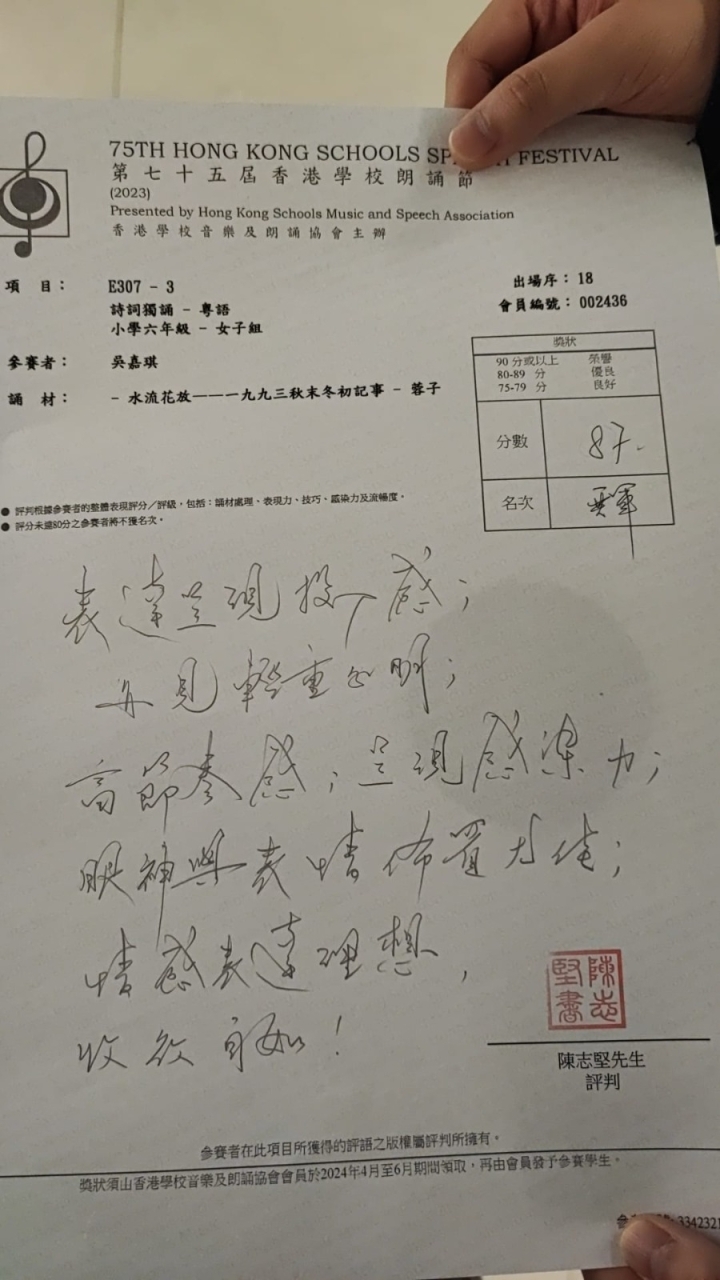 75TH HONG KONG SCHOOLS SP FESTIVAL
第七十五屆香港學校朗誦節
(2023)
Presented by Hong Kong Schools Music and Speech Association
香港學校音樂及朗誦協會主辦
項 目： E307 - 3
詩詞獨誦 - 粵語
小學六年級 - 女子組
出場序：18
會員編號：002436
參賽者： 吳嘉琪
誦 材： - 水流花放———一九九三秋末冬初記事 - 蓉子
獎狀
90 分或以上 榮譽
80-89 分 優良
75-79 分 良好
分數 87
名次
● 評判根據參賽者的整體表現評分／評級，包括：誦材處理、表現力、技巧、感染力及流暢度。
● 評分未達80分之參賽者將不獲名次。
表達呈現投入感；
再見輕重分明；
富節奏感；呈現感染力；
眼神與表情佈置尤佳；
情感表達理想，
收放自如！
陳志堅書
陳志堅先生
評判
參賽者在此項目所獲得的評語之版權屬評判所擁有。
獎狀須由香港學校音樂及朗誦協會會員於2024年4月至6月期間領取，再由會員發予參賽學生。
3342321